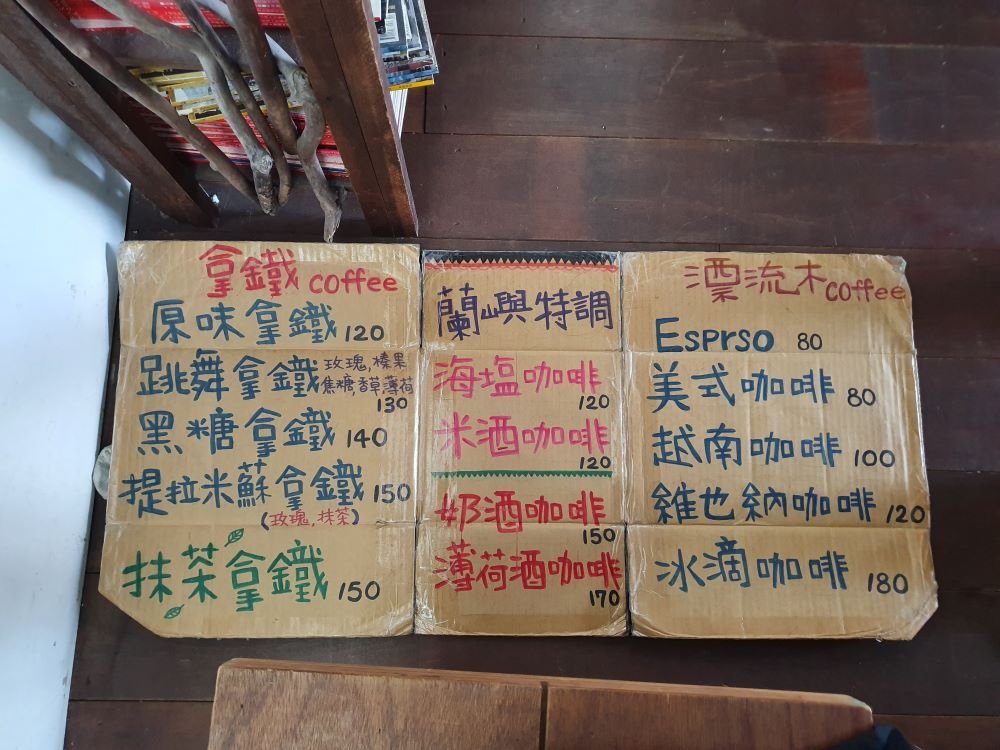 拿鐵 coffee
原味拿鐵 120
跳舞拿鐵 玫瑰,榛果
焦糖,香草,薄荷
130
黑糖拿鐵 140
提拉米蘇拿鐵 150
(玫瑰,抹茶)
抹茶拿鐵 150
蘭嶼特調
海塩咖啡
120
米酒咖啡
120
奶酒咖啡
150
薄荷酒咖啡
170
漂流木coffee
Esprso 80
美式咖啡 80
越南咖啡 100
維也納咖啡 120
冰滴咖啡 180